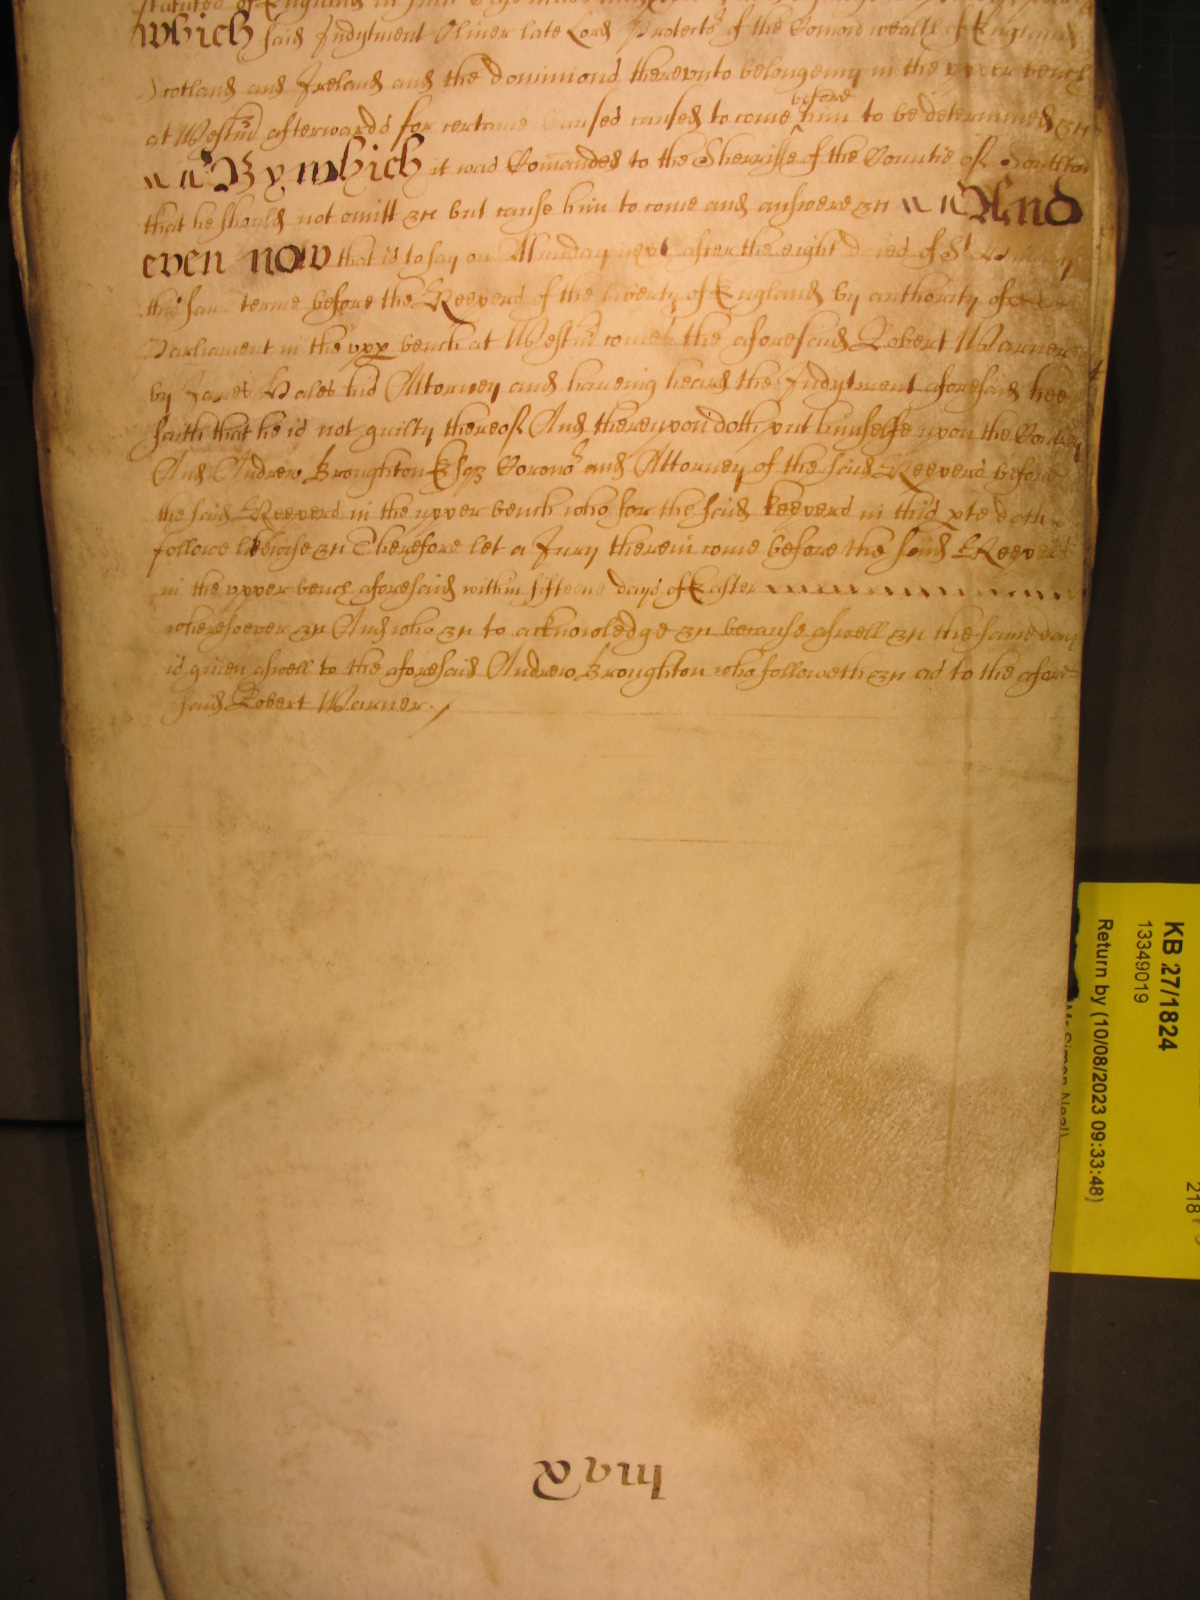 Statutes of England in such
which said Indytment Oliver late Lord Protectoʳ of the Comon wealth of England
Scotland and Ireland and the dominions thereunto belongeing in the upper bench
at Westm̃ afterwards for certaine Causes caused to come before him to be determined &c
By which it was Comanded to the Sherriffe of the Countie of Southton
that he should not omitt &c but cause him to come and answere &c And
even now that is to say on Munday next after the eight daies of Sᵗ Hillary
this same terme before the Keepers of the liberty of England by authority of
Parliament in the upp bench at Westm̃ comes the aforesaid Robert Warner
by James Hales his Attorney and haveing heard the Indytment aforesaid hee
saith that he is not guilty thereof And thereupon doth put himselfe upon the Country
And Andrew Broughton Esqʒ Coronoʳ and Attorney of the said Keepers before
the said Keepers in the upper bench who for the said keepers in this pte doth
followe likewise &c Therefore let a Jury therein come before the said Keepers
in the upper bench aforesaid within fifteene days of Easter
wheresoever &c And who &c to acknowledge &c because aswell &c the same day
is given aswell to the aforesaid Andrew Broughton who followeth &c as to the afore=
said Robert Warner.
KB 27/1824
13349019
Return by (10/08/2023 09:33:48)
Mr Simon Neal)